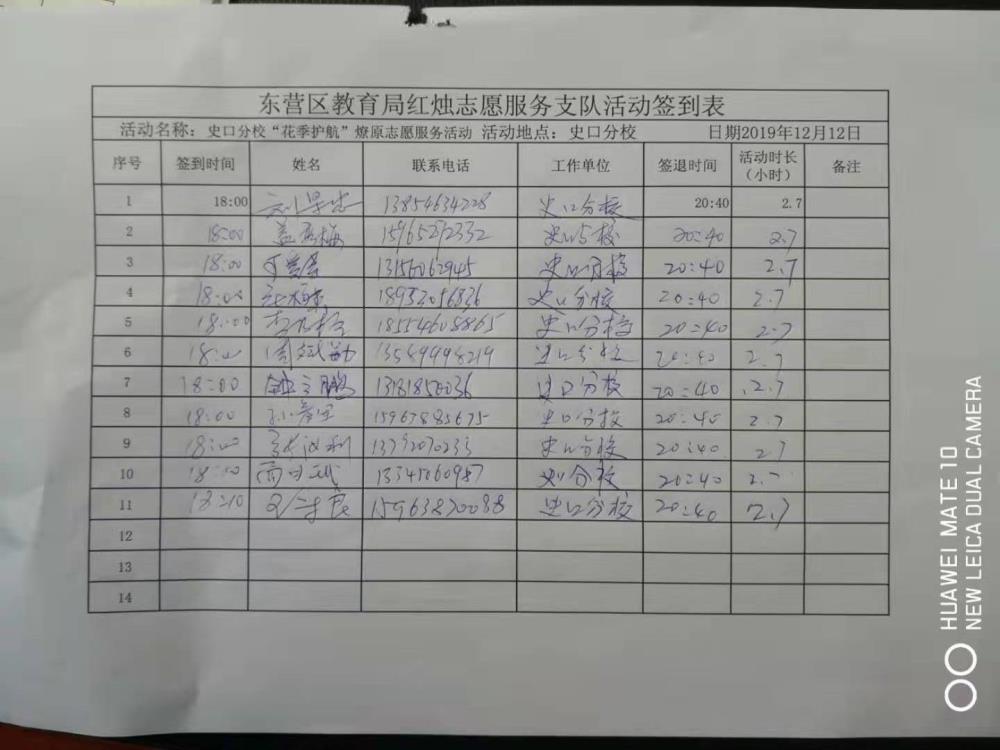 东营区教育局红烛志愿服务支队活动签到表
活动名称：史口分校“花季护航”燎原志愿服务活动 活动地点：史口分校 日期2019年12月12日
序号 签到时间 姓名 联系电话 工作单位 签退时间 活动时长（小时） 备注
1 18:00 13854634228 史口分校 20:40 2.7
2 18:00 15965292332 史口分校 20:40 2.7
3 18:00 13156062945 史口分校 20:40 2.7
4 18:00 史口分校 20:40 2.7
5 18:00 18554608865 史口分校 20:40 2.7
6 18:00 史口分校 20:40 2.7
7 18:00 史口分校 20:40 2.7
8 18:00 史口分校 20:40 2.7
9 18:00 史口分校 20:40 2.7
10 13345060987 史口分校 20:40 2.7
11 18:10 15963870088 史口分校 20:40 2.7
12
13
14
HUAWEI MATE 10
NEW LEICA DUAL CAMERA